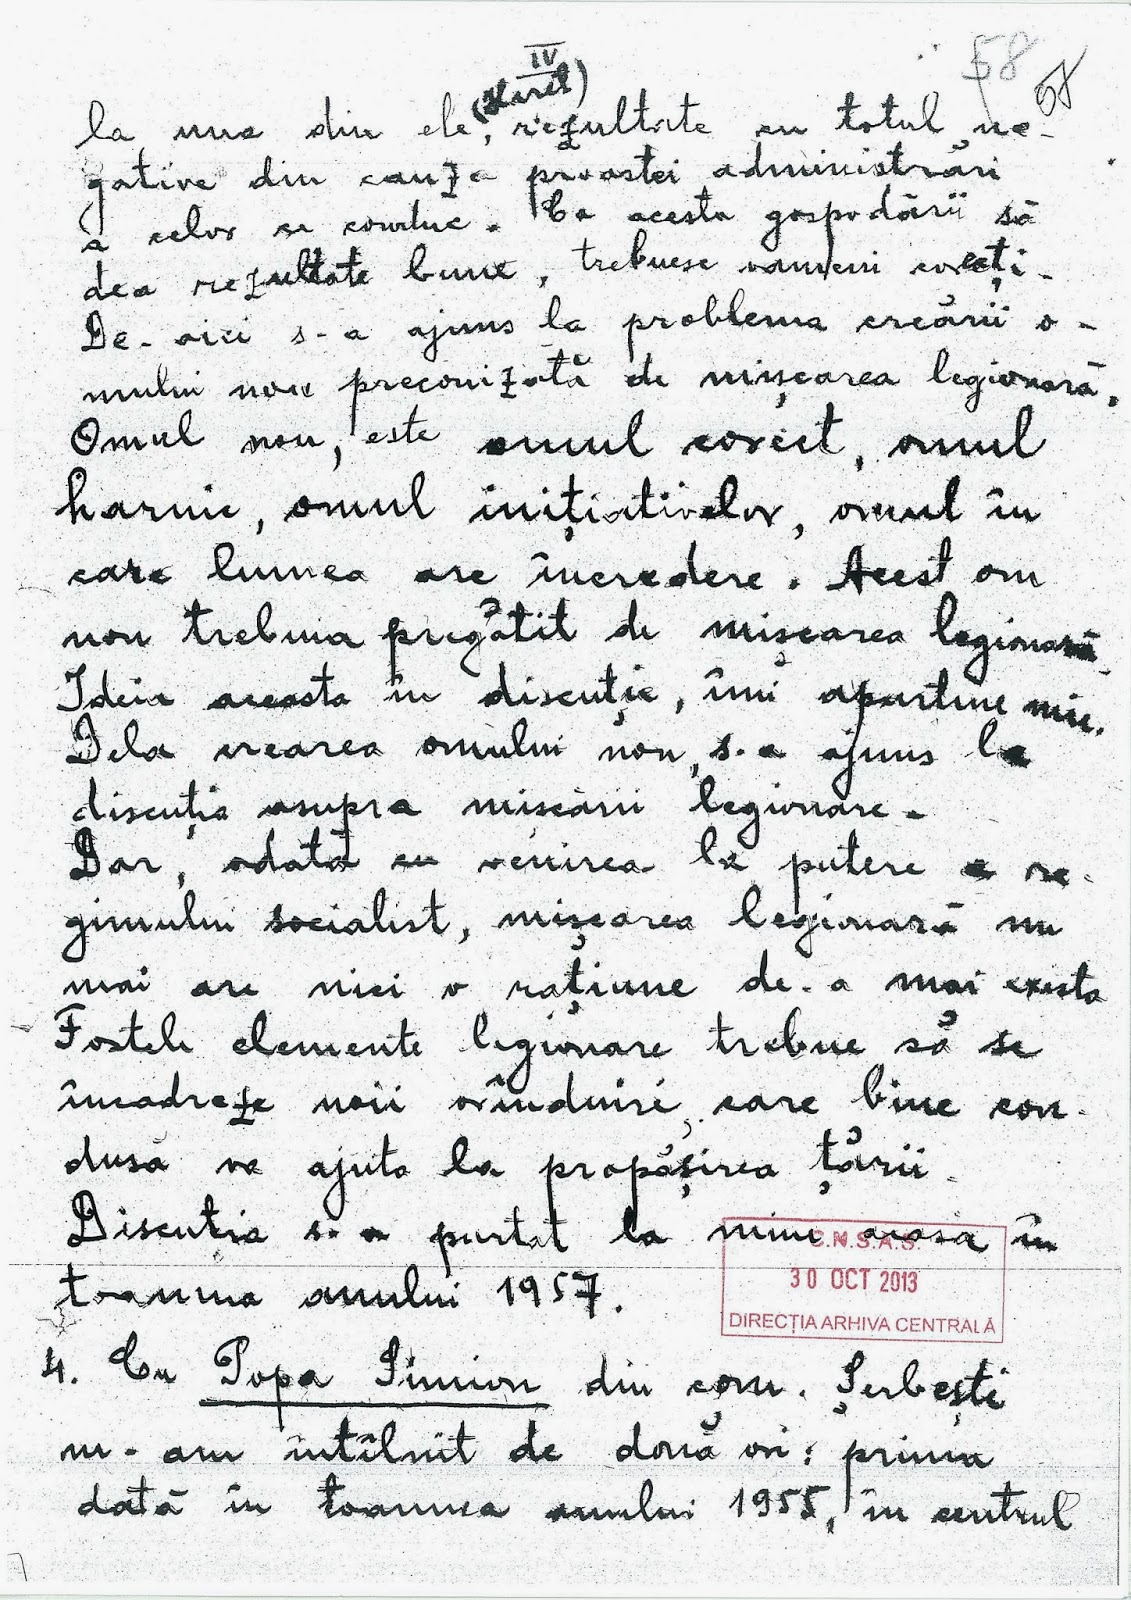 IV
58
58
(Horel)
la une din ele, rezultate cu totul ne-
gative din cauza proastei administrări
a celor ce conduc. Ca acesta gospodării să
dea rezultate bune, trebuesc oameni corecți.
De-aici s-a ajuns la problema creării o-
mului nou preconizată de mișcarea legionară.
Omul nou, este omul corect, omul
harnic, omul inițiativelor, omul în
care lumea are încredere. Acest om
nou trebuia pregătit de mișcarea legionară
Ideia aceasta în discuție, îmi aparține mie.
Dela crearea omului nou, s-a ajuns la
discuția asupra mișcării legionare.
Dar, odată cu venirea la putere a re-
gimului socialist, mișcarea legionară nu
mai are nici o rațiune de-a mai exista
Fostele elemente legionare trebue să se
încadreze noii orînduiri, care bine con-
dusă va ajuta la propășirea țării.
Discuția s-a purtat la mine acasă în
toamna anului 1957.
C.N.S.A.S.
30 OCT 2013
DIRECȚIA ARHIVA CENTRALĂ
4. Cu Popa Simion din com. Șerbești
m-am întîlnit de două ori: prima
dată în toamna anului 1955, în centrul